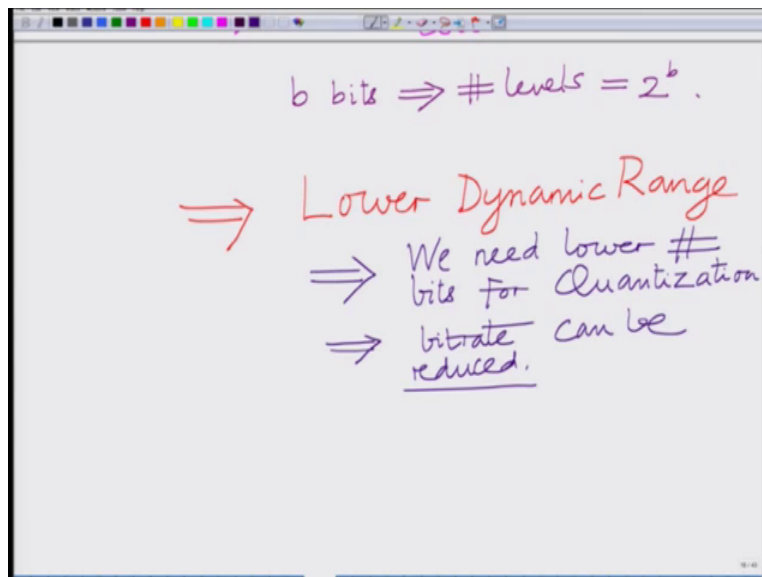 b bits ⇒ # levels = 2^b.
⇒ Lower Dynamic Range
⇒ We need lower #
bits for Quantization
⇒ bitrate can be
reduced.